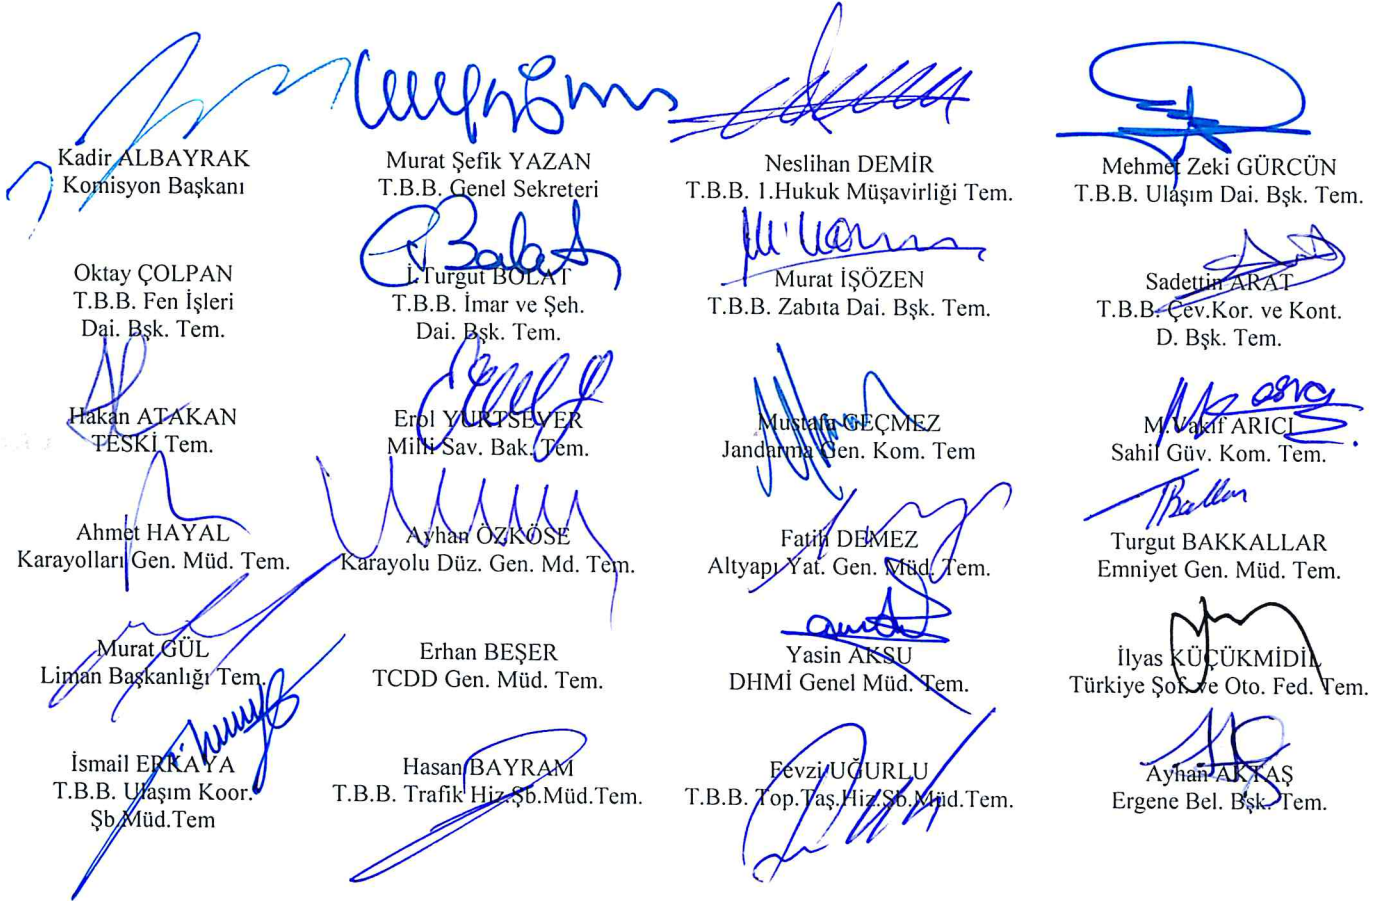 Kadir ALBAYRAK
Komisyon Başkanı
Murat Şefik YAZAN
T.B.B. Genel Sekreteri
Neslihan DEMİR
T.B.B. 1.Hukuk Müşavirliği Tem.
Mehmet Zeki GÜRCÜN
T.B.B. Ulaşım Dai. Bşk. Tem.
Oktay ÇOLPAN
T.B.B. Fen İşleri
Dai. Bşk. Tem.
İ.Turgut BOLAT
T.B.B. İmar ve Şeh.
Dai. Bşk. Tem.
Murat İŞÖZEN
T.B.B. Zabıta Dai. Bşk. Tem.
Sadettin ARAT
T.B.B. Çev.Kor. ve Kont.
D. Bşk. Tem.
Hakan ATAKAN
TESKİ Tem.
Erol YURTSEVER
Milli Sav. Bak. Tem.
Mustafa GEÇMEZ
Jandarma Gen. Kom. Tem
M.Vakıf ARICI
Sahil Güv. Kom. Tem.
Ahmet HAYAL
Karayolları Gen. Müd. Tem.
Ayhan ÖZKÖSE
Karayolu Düz. Gen. Md. Tem.
Fatih DEMEZ
Altyapı Yat. Gen. Müd. Tem.
Turgut BAKKALLAR
Emniyet Gen. Müd. Tem.
Murat GÜL
Liman Başkanlığı Tem.
Erhan BEŞER
TCDD Gen. Müd. Tem.
Yasin AKSU
DHMİ Genel Müd. Tem.
İlyas KÜÇÜKMİDİL
Türkiye Şof. ve Oto. Fed. Tem.
İsmail ERKAYA
T.B.B. Ulaşım Koor.
Şb.Müd.Tem
Hasan BAYRAM
T.B.B. Trafik Hiz.Şb.Müd.Tem.
Fevzi UĞURLU
T.B.B. Top.Taş.Hiz.Şb.Müd.Tem.
Ayhan AKTAŞ
Ergene Bel. Bşk. Tem.